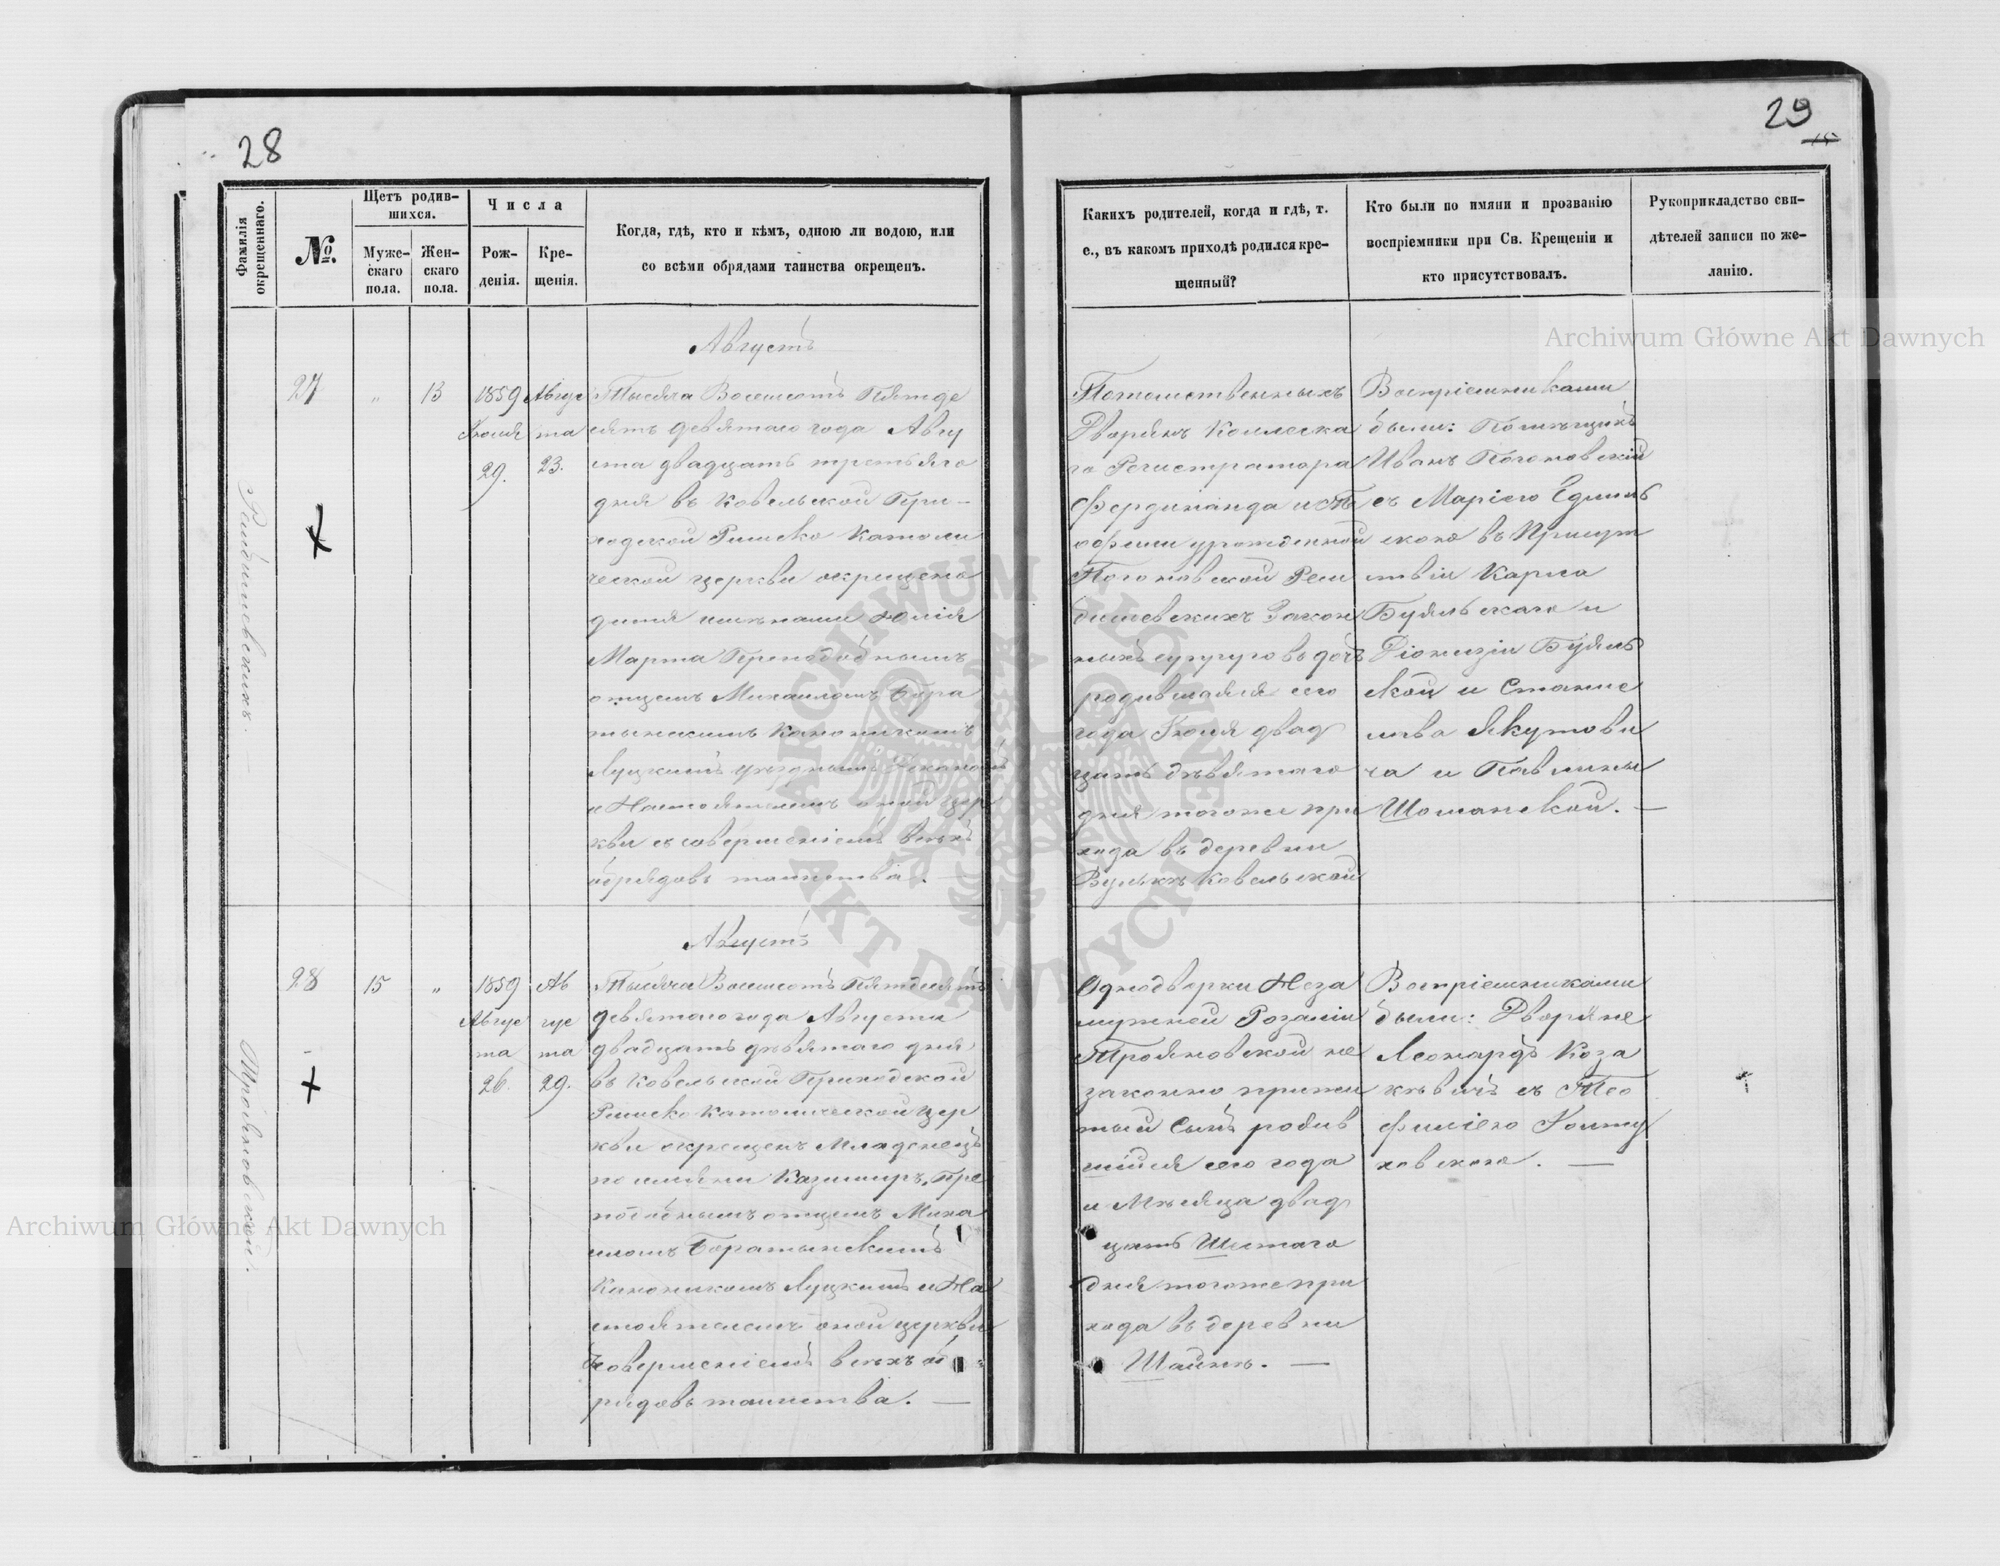 28
Фамилія окрещеннаго.
№.
Щетъ родив-
шихся.
Муже-
скаго
пола.
Жен-
скаго
пола.
Числа
Рож-
денія.
Кре-
щенія.
Когда, гдѣ, кто и кѣмъ, одною ли водою, или
со всѣми обрядами таинства окрещенъ.
Августъ
27
"
13
1859
Іюля
29.
Авгус
та
23.
Тысяча Восемсотъ Пятьде
сятъ девятаго года Авгу
ста двадцать третьяго
дня въ Ковельской При-
ходской Римско Католи
ческой церкви окрещено
дитя именами Юлія
Марта Преподобнымъ
отцемъ Михаиломъ Бора
тынскимъ Каноникомъ
Луцкимъ
и Настоятелемъ оной цер
кви съ совершеніемъ всѣхъ
обрядовъ таинства.
Августъ
28
15
"
1859
Авгус
та
26.
Ав
гус
та
29.
Тысяча Восемсотъ Пятдесятъ
девятаго года Августа
двадцать дѣвятаго дня
въ Ковельской Приходской
Римско Католической цер
кви окрещенъ Младенецъ
по имяни Казимиръ, Пре
подобнымъ отцемъ Миха
иломъ Боратынскимъ
Каноникомъ Луцкимъ и На
стоятелемъ оной церкви
Совершеніемъ всѣхъ об
рядовъ таинства. —
Трояновской.
29
Какихъ родителей, когда и гдѣ, т.
е., въ какомъ приходѣ родился кре-
щенный?
Кто были по имяни и прозванію
воспріемники при Св. Крещеніи и
кто присутствовалъ.
Рукоприкладство сви-
дѣтелей записи по же-
ланію.
Потомственныхъ
Дворянъ Коллежска
го Регистратора
Фердинанда и Те
офили урожденной
Погоновской Рем
бишевскихъ Закон
ныхъ супруговъ дочь
родившаяся сего
года Іюля двад
цать дѣвятаго
дня тогоже при
хода въ деревни
Вулькѣ Ковельской
Воспріемниками
были: Помѣщикъ
Иванъ Погоновскій
съ Маріею
скою въ Присут
ствіи Карла
Буяльскаго и
Діонизіи Буяль
ской и Станис
лава Якутови
ча и Павлины
Шоманской. —
Однодворки Неза
мужней Розаліи
Трояновской не
законно прижи
тый Сынъ родив
шійся сего года
и Мѣсяца двад
цать Шестаго
дня тогоже при
хода въ деревни
Шайнѣ. —
Воспріемниками
были: Дворяне
Леонардъ Коза
кѣвичъ съ Тео
филіею Голту
ховскою. —
Archiwum Główne Akt Dawnych
Archiwum Główne Akt Dawnych
ARCHIWUM GŁÓWNE
AKT DAWNYCH